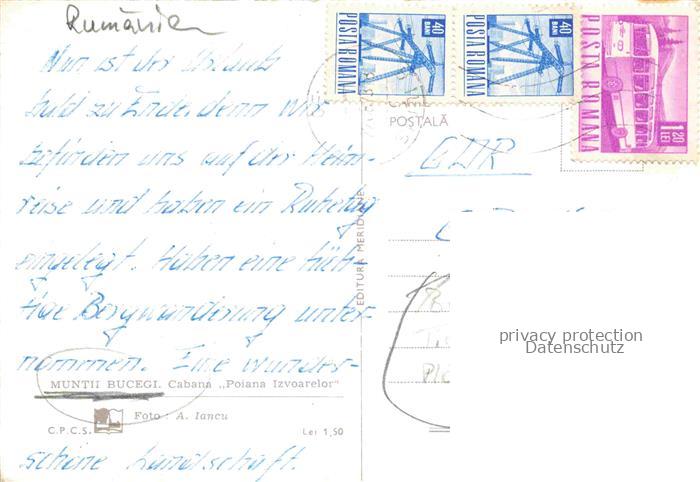 Rumänien
Nun ist der Urlaub
bald zu Ende, denn wir
befinden uns auf der Heim-
reise und haben ein Ruhetag
eingelegt. Haben eine
Bergwanderung unter-
nommen. Eine wunder-
MUNȚII BUCEGI. Cabana „Poiana Izvoarelor"
Foto : A. Iancu
C.P.C.S.
Lei 1,50
schöne Landschaft.
EDITURA MERIDIANE
POȘTALĂ
GDR
POSTA ROMANA
40 BANI
POSTA ROMANA
40 BANI
POSTA ROMANA
1,20 LEI
privacy protection
Datenschutz